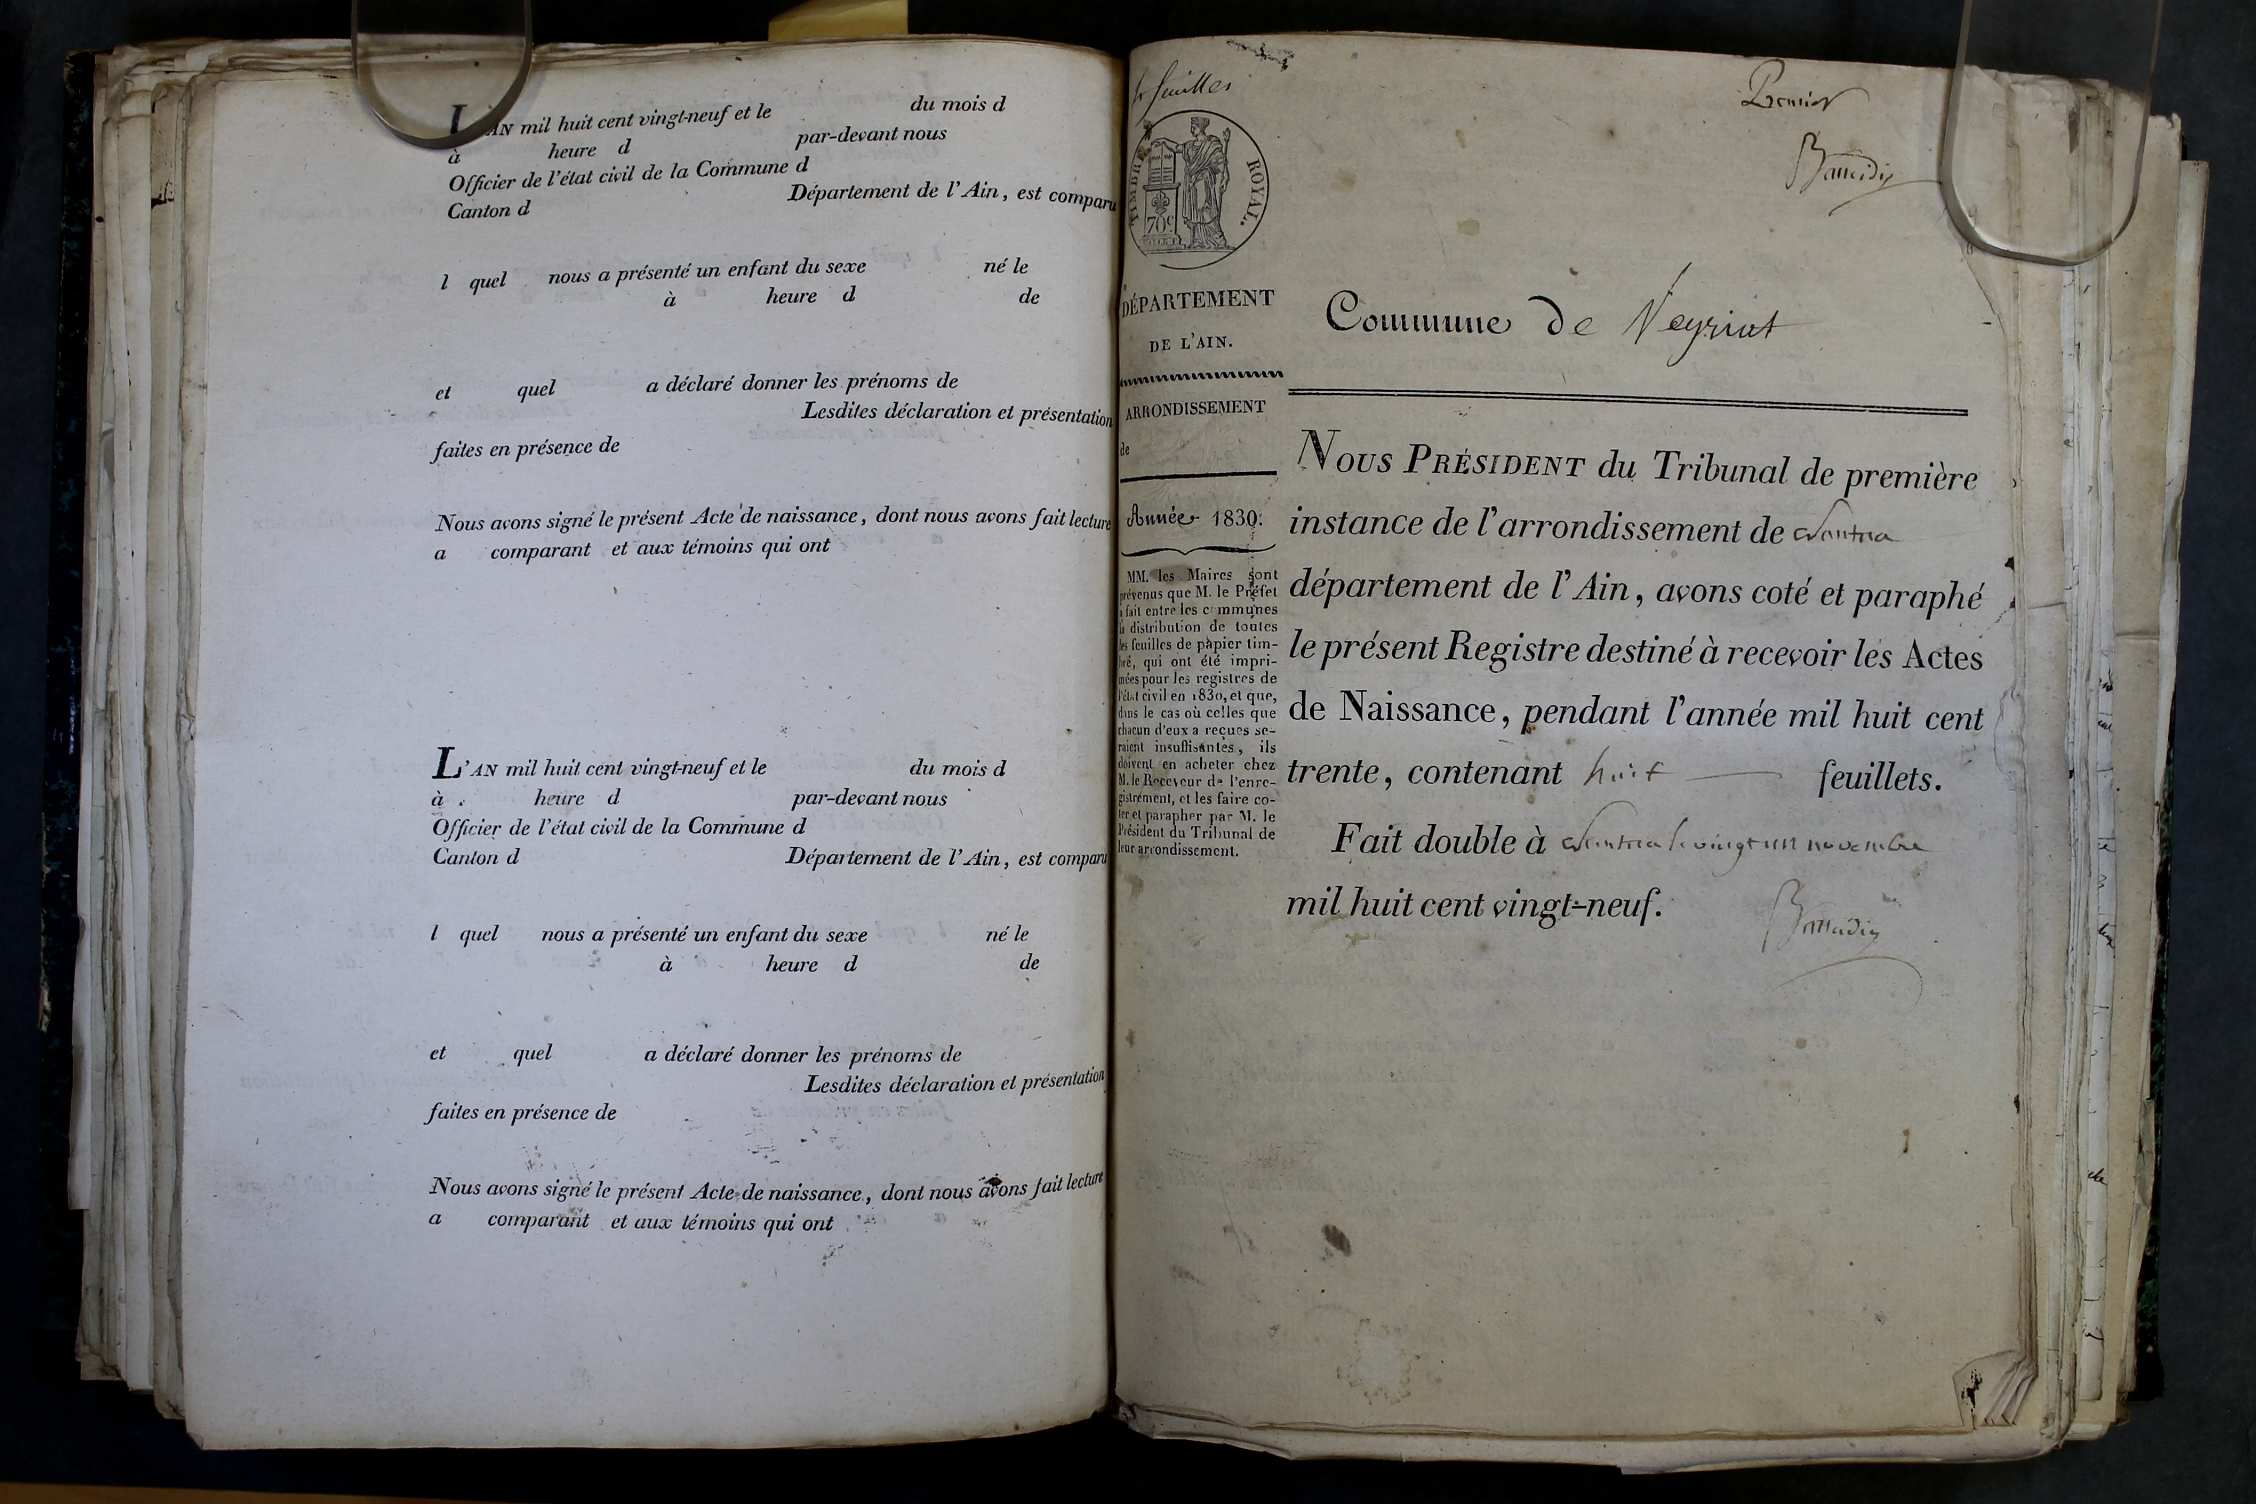 L'AN mil huit cent vingt-neuf et le du mois d
à heure d par-devant nous
Officier de l'état civil de la Commune d
Canton d Département de l'Ain, est comparu
l quel nous a présenté un enfant du sexe né le
à heure d de
et quel a déclaré donner les prénoms de
Lesdites déclaration et présentation
faites en présence de
Nous avons signé le présent Acte de naissance, dont nous avons fait lecture
a comparant et aux témoins qui ont
L'AN mil huit cent vingt-neuf et le du mois d
à heure d par-devant nous
Officier de l'état civil de la Commune d
Canton d Département de l'Ain, est comparu
l quel nous a présenté un enfant du sexe né le
à heure d de
et quel a déclaré donner les prénoms de
Lesdites déclaration et présentation
faites en présence de
Nous avons signé le présent Acte de naissance, dont nous avons fait lecture
a comparant et aux témoins qui ont
feuilles
Premier
TIMBRE ROYAL.
70c
DÉPARTEMENT
DE L'AIN.
ARRONDISSEMENT
de
Année 1830.
MM. les Maires sont
prévenus que M. le Préfet
a fait entre les communes
la distribution de toutes
les feuilles de papier tim-
bré, qui ont été impri-
mées pour les registres de
l'état civil en 1830, et que,
dans le cas où celles que
chacun d'eux a reçues se-
raient insuffisantes, ils
doivent en acheter chez
M. le Receveur de l'enre-
gistrement, et les faire co-
ter et parapher par M. le
Président du Tribunal de
leur arrondissement.
Commune de Veyriat
NOUS PRÉSIDENT du Tribunal de première
instance de l'arrondissement de Nantua
département de l'Ain, avons coté et paraphé
le présent Registre destiné à recevoir les Actes
de Naissance, pendant l'année mil huit cent
trente, contenant huit feuillets.
Fait double à Nantua le vingt un novembre
mil huit cent vingt-neuf.